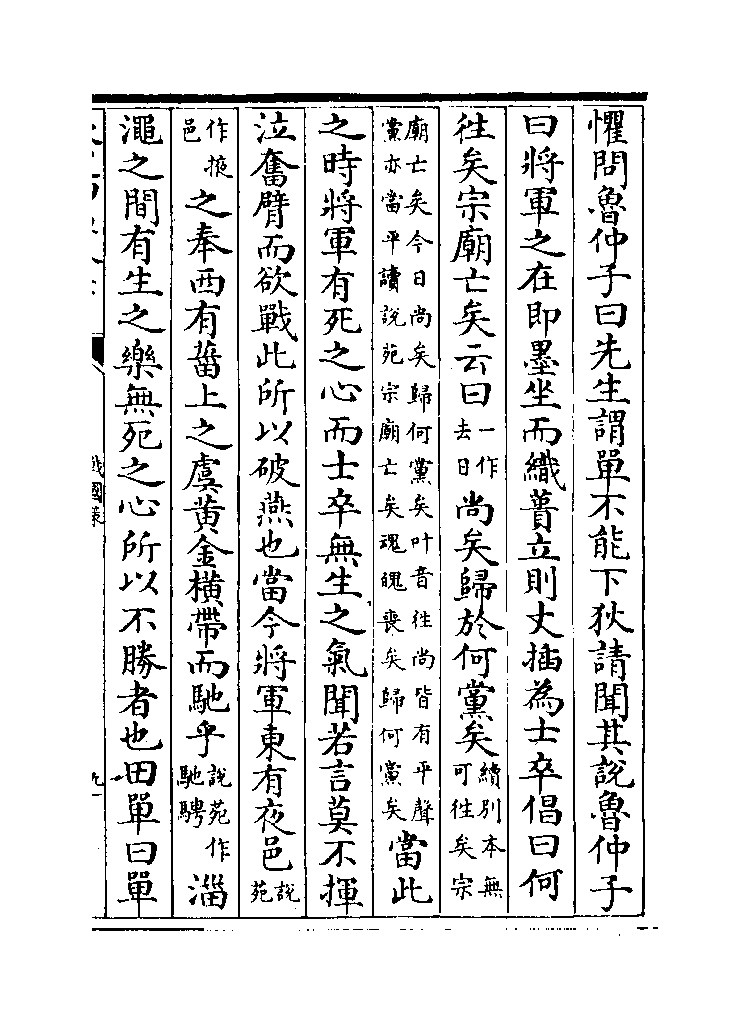 懼問魯仲子曰先生謂單不能下狄請聞其説魯仲子
曰將軍之在即墨坐而織蕢立則丈插為士卒倡曰何
徃矣宗廟亡矣云曰一作去日尚矣歸於何黨矣續別本無可徃矣宗
廟亡矣今日尚矣歸何黨矣叶音徃尚皆有平聲黨亦當平讀説苑宗廟亡矣魂魄喪矣歸何黨矣當此
之時將軍有死之心而士卒無生之氣聞若言莫不揮
泣奮臂而欲戰此所以破燕也當今將軍東有夜邑説苑
作掖邑之奉西有菑上之虞黄金横帶而馳乎説苑作馳騁淄
澠之間有生之樂無死之心所以不勝者也田單曰單
戰國策